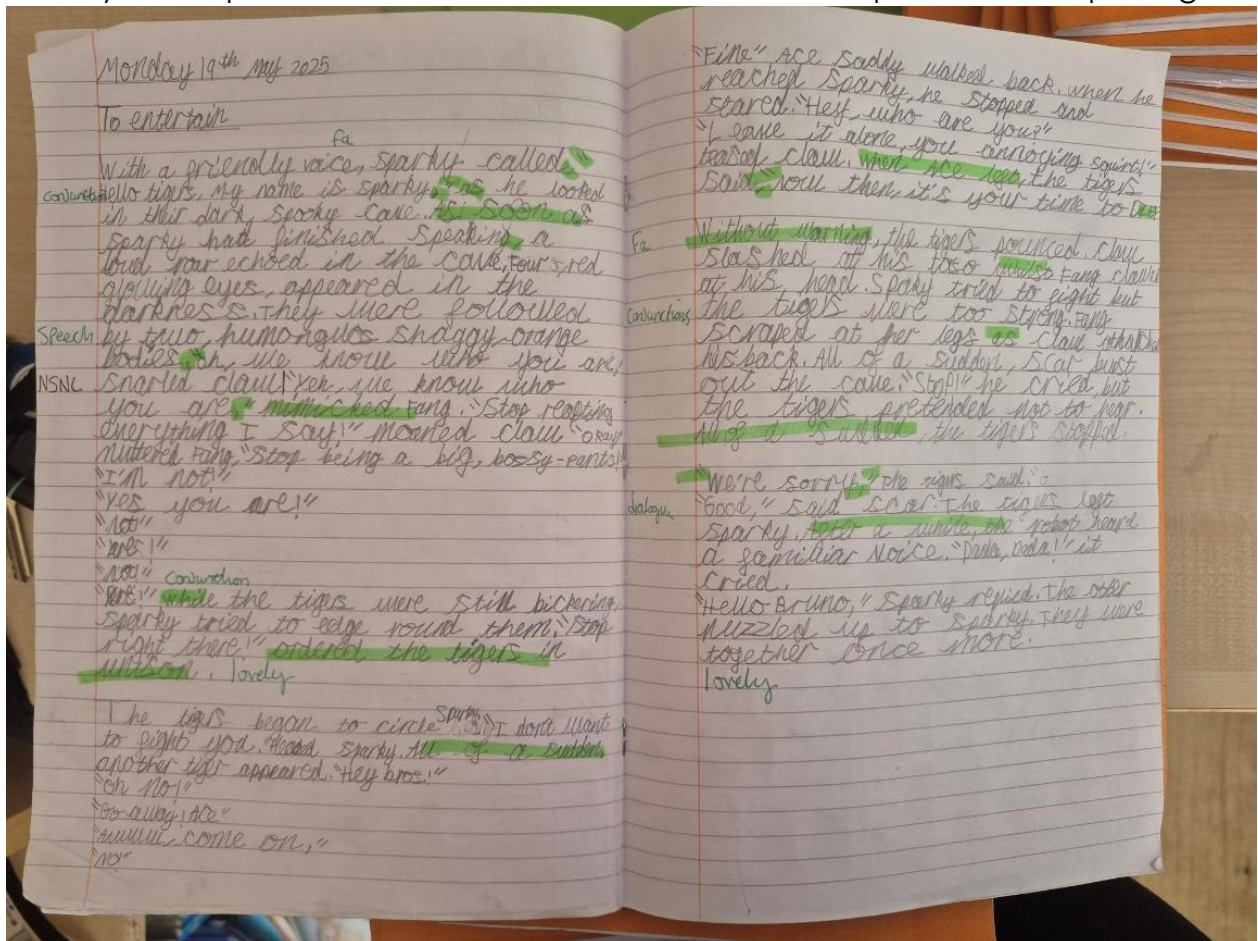 Monday 19th May 2025
To entertain
fa
With a friendly voice, sparky called, "
Conjunction
Hello tigers, My name is sparky," as he looked
in their dark, spooky cave. As soon as
sparky had finished speaking, a
loud roar echoed in the cave, Four, red
glowing eyes, appeared in the
darknes's. They were followed
Speech
by two humongous shaggy-orange
bodies. "Oh, we know who you are,"
NSNC
snarled claw. "Yeh, we know who
you are," mimicked Fang. "Stop reapting
everything I say!" moaned claw "Okay"
muttered Fang, "Stop being a big, bossy-pants!"
"I'm not!"
"Yes you are!"
"not"
"are!"
"not!"
Conjunction
"are!" while the tigers were still bickering,
sparky tried to edge round them. "Stop
right there!" ordered the tigers in
unison. lovely
The tigers began to circle Sparky. "I don't want
to fight you." sparky. All of a sudden,
another tiger appeared. "Hey bros!"
"oh no!"
"Go away, ACe"
"Awwww, come on,"
"NO!"
"Fine" Ace saddy walked back. when he
reached Sparky, he stopped and
stared. "Hey, who are you?"
"Leave it alone, you annoying squirt!"
teased claw. when Ace left, the tigers
said, "now then, it's your time to
Fa
Without warning, the tigers pounced. Claw
slashed at his whilst Fang clawed
at his head. Sparky tried to fight but
Conjunctions
the tigers were too strong. Fang
scraped at her legs as claw
his back. All of a sudden, scar burst
out the cave. "Stop!" he cried but
the tigers pretended not to hear.
All of a sudded, the tigers stopped.
"We're sorry," The tigers said.
dialogue
"Good," said scar. The tigers left
sparky. After a while, the robot heard
a familiar voice. "Dada, Dada!" it
cried.
"Hello Bruno," Sparky replied. The otter
nuzzled up to sparky. They were
together once more.
lovely